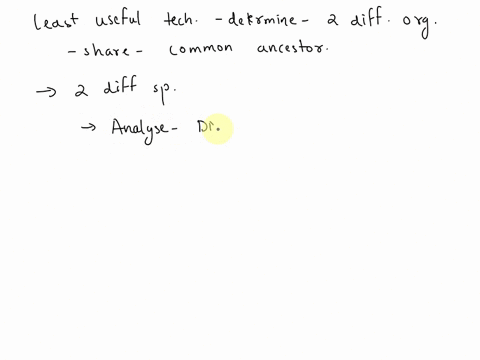 Least useful tech. - determine - 2 diff. org.
- share - common ancestor.
→ 2 diff sp.
→ Analyse - D